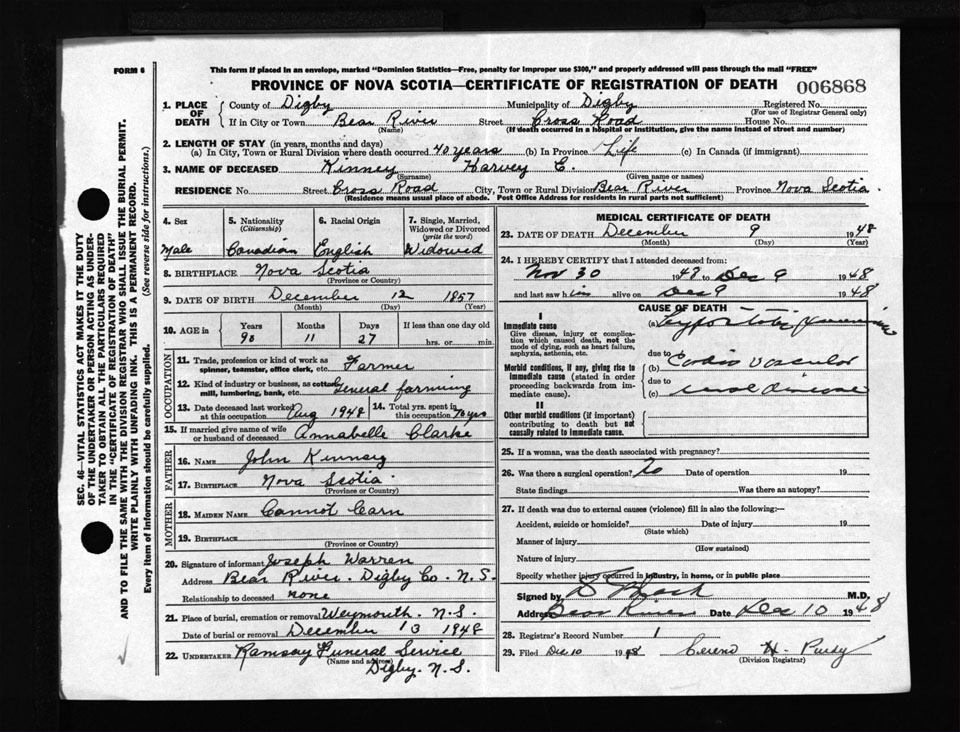 FORM 6
This form if placed in an envelope, marked "Dominion Statistics—Free, penalty for improper use $300," and properly addressed will pass through the mail "FREE"
PROVINCE OF NOVA SCOTIA—CERTIFICATE OF REGISTRATION OF DEATH 006868
1. PLACE OF DEATH { County of Digby Municipality of Digby Registered No.
(For use of Registrar General only)
If in City or Town Bear River Street Cross Road House No.
(Name) (If death occurred in a hospital or institution, give the name instead of street and number)
2. LENGTH OF STAY (in years, months and days)
(a) In City, Town or Rural Division where death occurred 40 years (b) In Province Life (c) In Canada (if immigrant)
3. NAME OF DECEASED Kinney Harvey C.
(Surname) (Given name or names)
RESIDENCE No. Street Cross Road City, Town or Rural Division Bear River Province Nova Scotia.
(Residence means usual place of abode. Post Office Address for residents in rural parts not sufficient)
4. Sex 5. Nationality 6. Racial Origin 7. Single, Married, Widowed or Divorced
(Citizenship) (write the word)
Male Canadian English Widowed
8. BIRTHPLACE Nova Scotia
(Province or Country)
9. DATE OF BIRTH December 12 1857
(Month) (Day) (Year)
10. AGE in Years Months Days If less than one day old
90 11 27 hrs. or min.
OCCUPATION
11. Trade, profession or kind of work as spinner, teamster, office clerk, etc. Farmer
12. Kind of industry or business, as cotton mill, lumbering, bank, etc. General farming
13. Date deceased last worked at this occupation Aug 1948 14. Total yrs. spent in this occupation 70 yrs
15. If married give name of wife or husband of deceased Annabelle Clarke
FATHER
16. NAME John Kinney
17. BIRTHPLACE Nova Scotia
(Province or Country)
MOTHER
18. MAIDEN NAME Cannot Earn
19. BIRTHPLACE
(Province or Country)
20. Signature of informant Joseph Warren
Address Bear River. Digby Co. N.S.
Relationship to deceased none
21. Place of burial, cremation or removal Weymouth. N.S.
Date of burial or removal December 13 1948
22. UNDERTAKER Ramsay Funeral Service
(Name and address) Digby. N.S.
MEDICAL CERTIFICATE OF DEATH
23. DATE OF DEATH December 9 1948
(Month) (Day) (Year)
24. I HEREBY CERTIFY that I attended deceased from:
Nov 30 1948 to Dec 9 1948
and last saw him alive on Dec 9 1948
CAUSE OF DEATH
I
Immediate cause (a)
Give disease, injury or complication which caused death, not the mode of dying, such as heart failure, asphyxia, asthenia, etc.
due to
Morbid conditions, if any, giving rise to immediate cause (stated in order proceeding backwards from immediate cause). (b) Cardio vascular
due to
(c) disease
II
Other morbid conditions (if important) contributing to death but not causally related to immediate cause.
25. If a woman, was the death associated with pregnancy?
26. Was there a surgical operation? No Date of operation 19
State findings Was there an autopsy?
27. If death was due to external causes (violence) fill in also the following:—
Accident, suicide or homicide? Date of injury 19
(State which)
Manner of injury
(How sustained)
Nature of injury
Specify whether injury occurred in industry, in home, or in public place
Signed by M.D.
Address Bear River Date Dec 10 1948
28. Registrar's Record Number 1
29. Filed Dec 10 1948 Cereno H. Purdy
(Division Registrar)
SEC. 46—VITAL STATISTICS ACT MAKES IT THE DUTY
OF THE UNDERTAKER OR PERSON ACTING AS UNDERTAKER
TO OBTAIN ALL THE PARTICULARS REQUIRED
IN THE "CERTIFICATE OF REGISTRATION OF DEATH"
AND TO FILE THE SAME WITH THE DIVISION REGISTRAR WHO SHALL ISSUE THE BURIAL PERMIT.
WRITE PLAINLY WITH UNFADING INK. THIS IS A PERMANENT RECORD.
Every item of information should be carefully supplied. (See reverse side for instructions.)